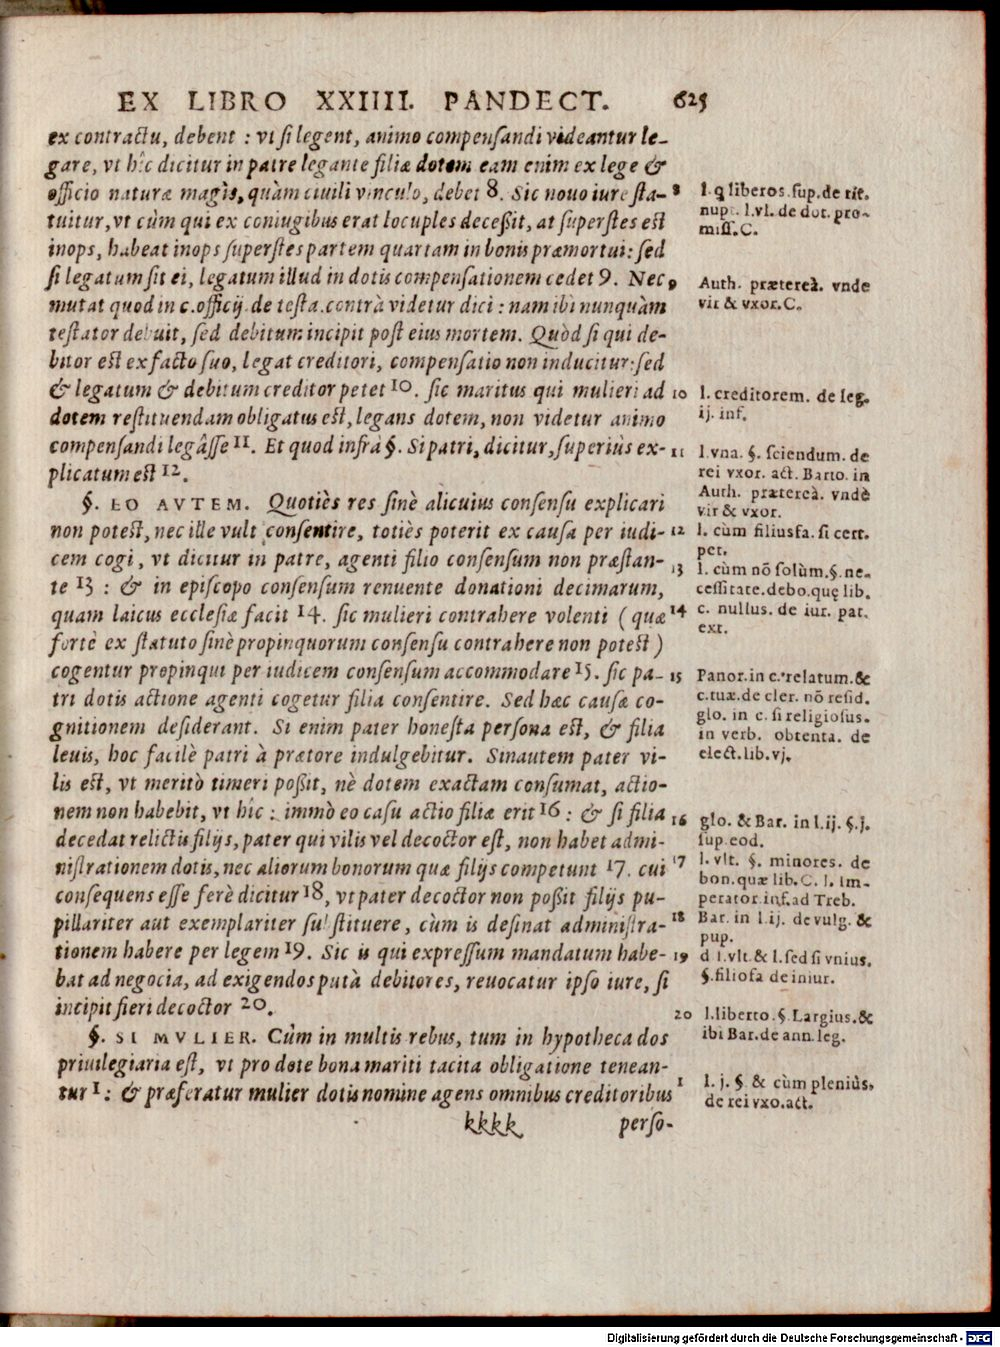 EX LIBRO XXIIII. PANDECT. 625
ex contractu, debent : vt si legent, animo compensandi videantur le-
gare, vt hîc dicitur in patre legante filiæ dotem eam enim ex lege &
officio naturæ magis, quàm ciuili vinculo, debet 8. Sic nouo iure sta-
tuitur, vt cùm qui ex coniugibus erat locuples decessit, at superstes est
inops, habeat inops superstes partem quartam in bonis præmortui: sed
si legatum sit ei, legatum illud in dotis compensationem cedet 9. Nec
mutat quod in c. officij. de testa. contrà videtur dici : nam ibi nunquàm
testator debuit, sed debitum incipit post eius mortem. Quòd si qui de-
bitor est ex facto suo, legat creditori, compensatio non inducitur: sed
& legatum & debitum creditor petet 10. sic maritus qui mulieri ad
dotem restituendam obligatus est, legans dotem, non videtur animo
compensandi legâsse 11. Et quod infrà §. Si patri, dicitur, superiùs ex-
plicatum est 12.
§. EO AVTEM. Quotiès res sinè alicuius consensu explicari
non potest, nec ille vult consentire, totiès poterit ex causa per iudi-
cem cogi, vt dicitur in patre, agenti filio consensum non præstan-
te 13 : & in episcopo consensum renuente donationi decimarum,
quam laicus ecclesiæ facit 14. sic mulieri contrahere volenti ( quæ
fortè ex statuto sinè propinquorum consensu contrahere non potest )
cogentur propinqui per iudicem consensum accommodare 15. sic pa-
tri dotis actione agenti cogetur filia consentire. Sed hæc causæ co-
gnitionem desiderant. Si enim pater honesta persona est, & filia
leuis, hoc facilè patri à prætore indulgebitur. Sinautem pater vi-
lis est, vt meritò timeri possit, nè dotem exactam consumat, actio-
nem non habebit, vt hîc : immò eo casu actio filiæ erit 16 : & si filia
decedat relictis filijs, pater qui vilis vel decoctor est, non habet admi-
nistrationem dotis, nec aliorum bonorum quæ filijs competunt 17. cui
consequens esse ferè dicitur 18, vt pater decoctor non possit filijs pu-
pillariter aut exemplariter substituere, cùm is desinat administra-
tionem habere per legem 19. Sic is qui expressum mandatum habe-
bat ad negocia, ad exigendos putà debitores, reuocatur ipso iure, si
incipit fieri decoctor 20.
§. SI MVLIER. Cùm in multis rebus, tum in hypotheca dos
priuilegiaria est, vt pro dote bona mariti tacita obligatione tenean-
tur 1 : & præferatur mulier dotis nomine agens omnibus creditoribus
kkkk perso-
8 l. q liberos. sup. de rit.
nupt. l. vl. de dot. pro-
miss. C.
9 Auth. prætereà. vnde
vir & vxor. C.
10 l. creditorem. de leg.
ij. inf.
11 l. vna. §. sciendum. de
rei vxor. act. Barto. in
Auth. prætereà. vndè
vir & vxor.
12 l. cùm filiusfa. si cert.
pet.
13 l. cùm nõ solùm. §. ne-
cessitate. de bo. quę lib.
14 c. nullus. de iur. pat.
ext.
15 Panor. in c. relatum. &
c. tuæ. de cler. nõ resid.
glo. in c. si religiosus.
in verb. obtenta. de
elect. lib. vj.
16 glo. & Bar. in l. ij. §. j.
sup. eod.
17 l. vlt. §. minores. de
bon. quæ lib. C. l. Im-
perator. inf. ad Treb.
18 Bar. in l. ij. de vulg. &
pup.
19 d l. vlt. & l. sed si vnius.
§. filiofa de iniur.
20 l. liberto. §. Largius. &
ibi Bar. de ann. leg.
1 l. j. § & cùm pleniùs,
de rei vxo. act.
Digitalisierung gefördert durch die Deutsche Forschungsgemeinschaft - DFG